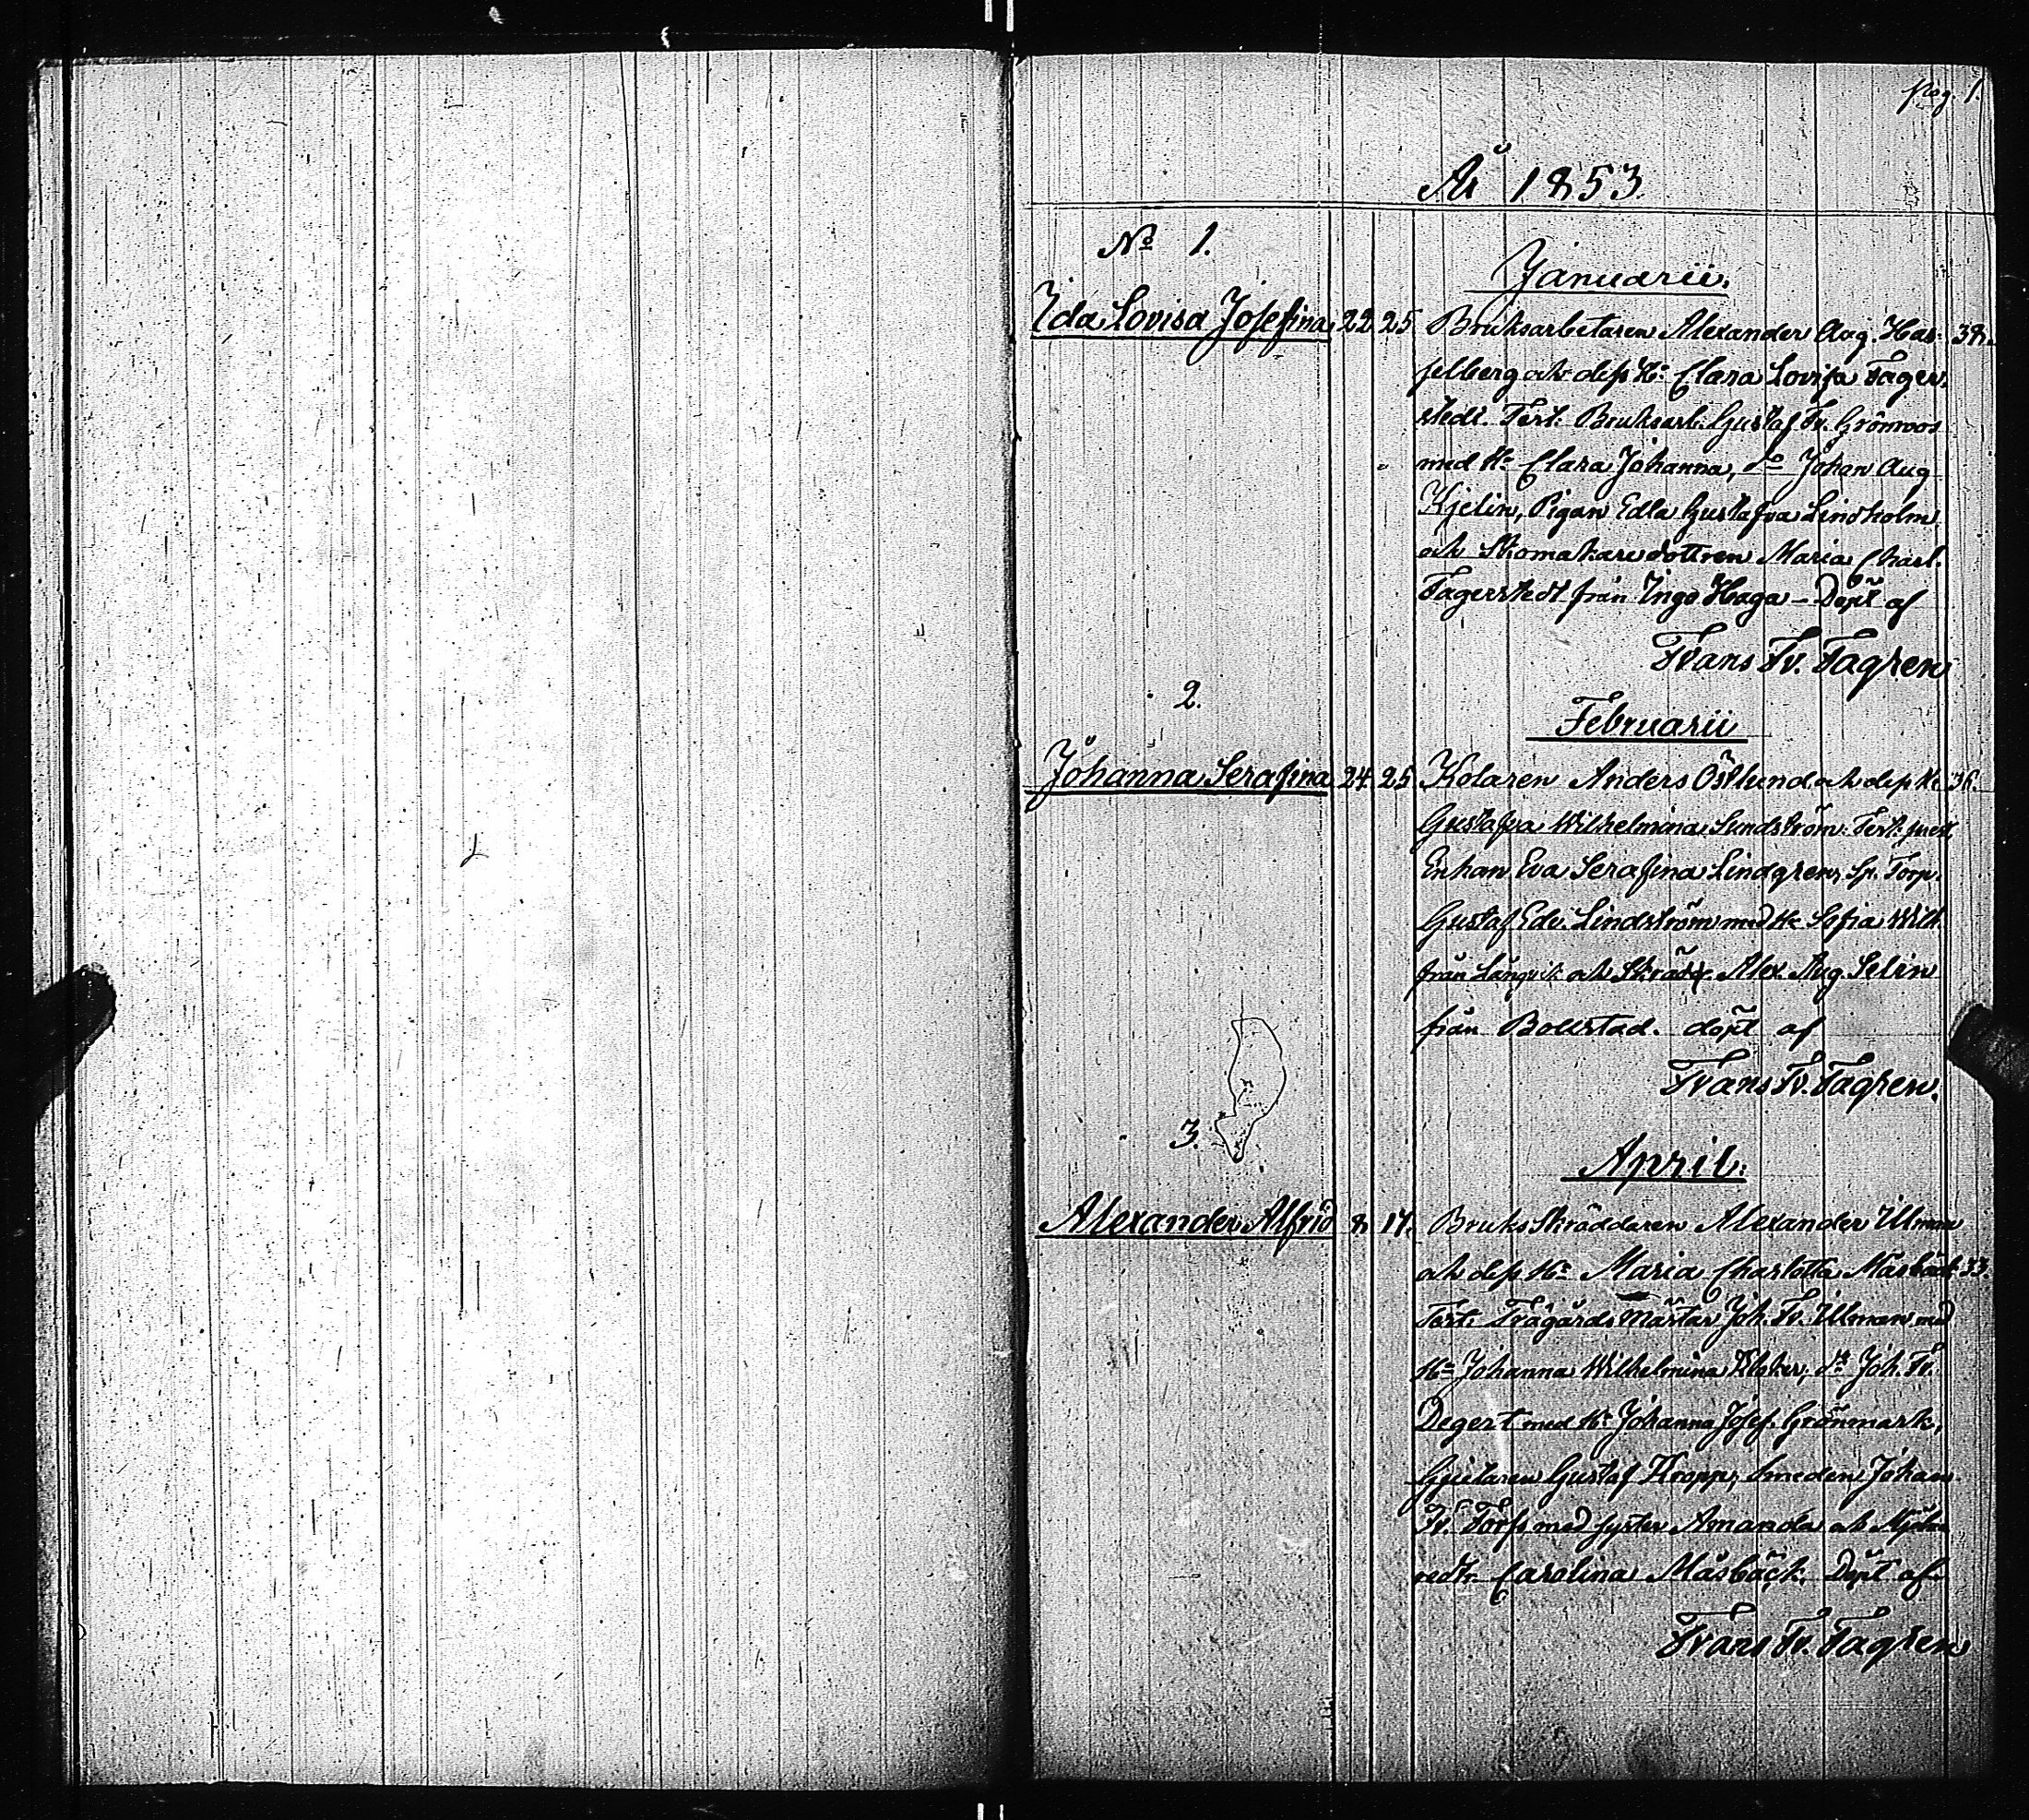 pag 1.
År 1853.
No 1.
Januarii.
Ida Lovisa Josefina 22 25 Bruksarbetaren Alexander Aug. Has- 38.
selberg och dess Hu Clara Lovisa Fager-
stedt. Test: Bruksarb: Gustaf Fr. Grönroos
med Hu Clara Johanna, do Johan Aug
Kjelin, Pigan Edla Gustafva Lindholm
och Skomakaredottren Maria Charl.
Fagerstedt från Ingo Haga – Döpt af
Frans Fr. Fagren
2.
Februarii
Johanna Serafina 24 25 Kolaren Anders Östlund och dess Hu 36.
Gustafva Wilhelmina Sundström. Test:
Enkan Eva Serafina Lindgren, Sp. Torp.
Gustaf Edv. Lindström med Hu Sofia Wilh.
från Långvik och Skrädd. Alex. Aug. Selin
från Bollstad. döpt af
Frans Fr. Fagren.
3.
April.
Alexander Alfrid 8 17. Bruks Skräddaren Alexander Ulman
och dess Hu Maria Charlotta Måsbäck 33.
Test: Trägårds Mästar Joh. Fr. Ulman med
Hu Johanna Wilhelmina do Joh. Fr.
Degert med Hu Johanna Josef. Grönmark,
Gjutaren Gustaf Kropp, Smeden Johan
Fr. Forss med syster Amanda och
Carolina Måsbäck. Döpt af
Frans Fr. Fagren